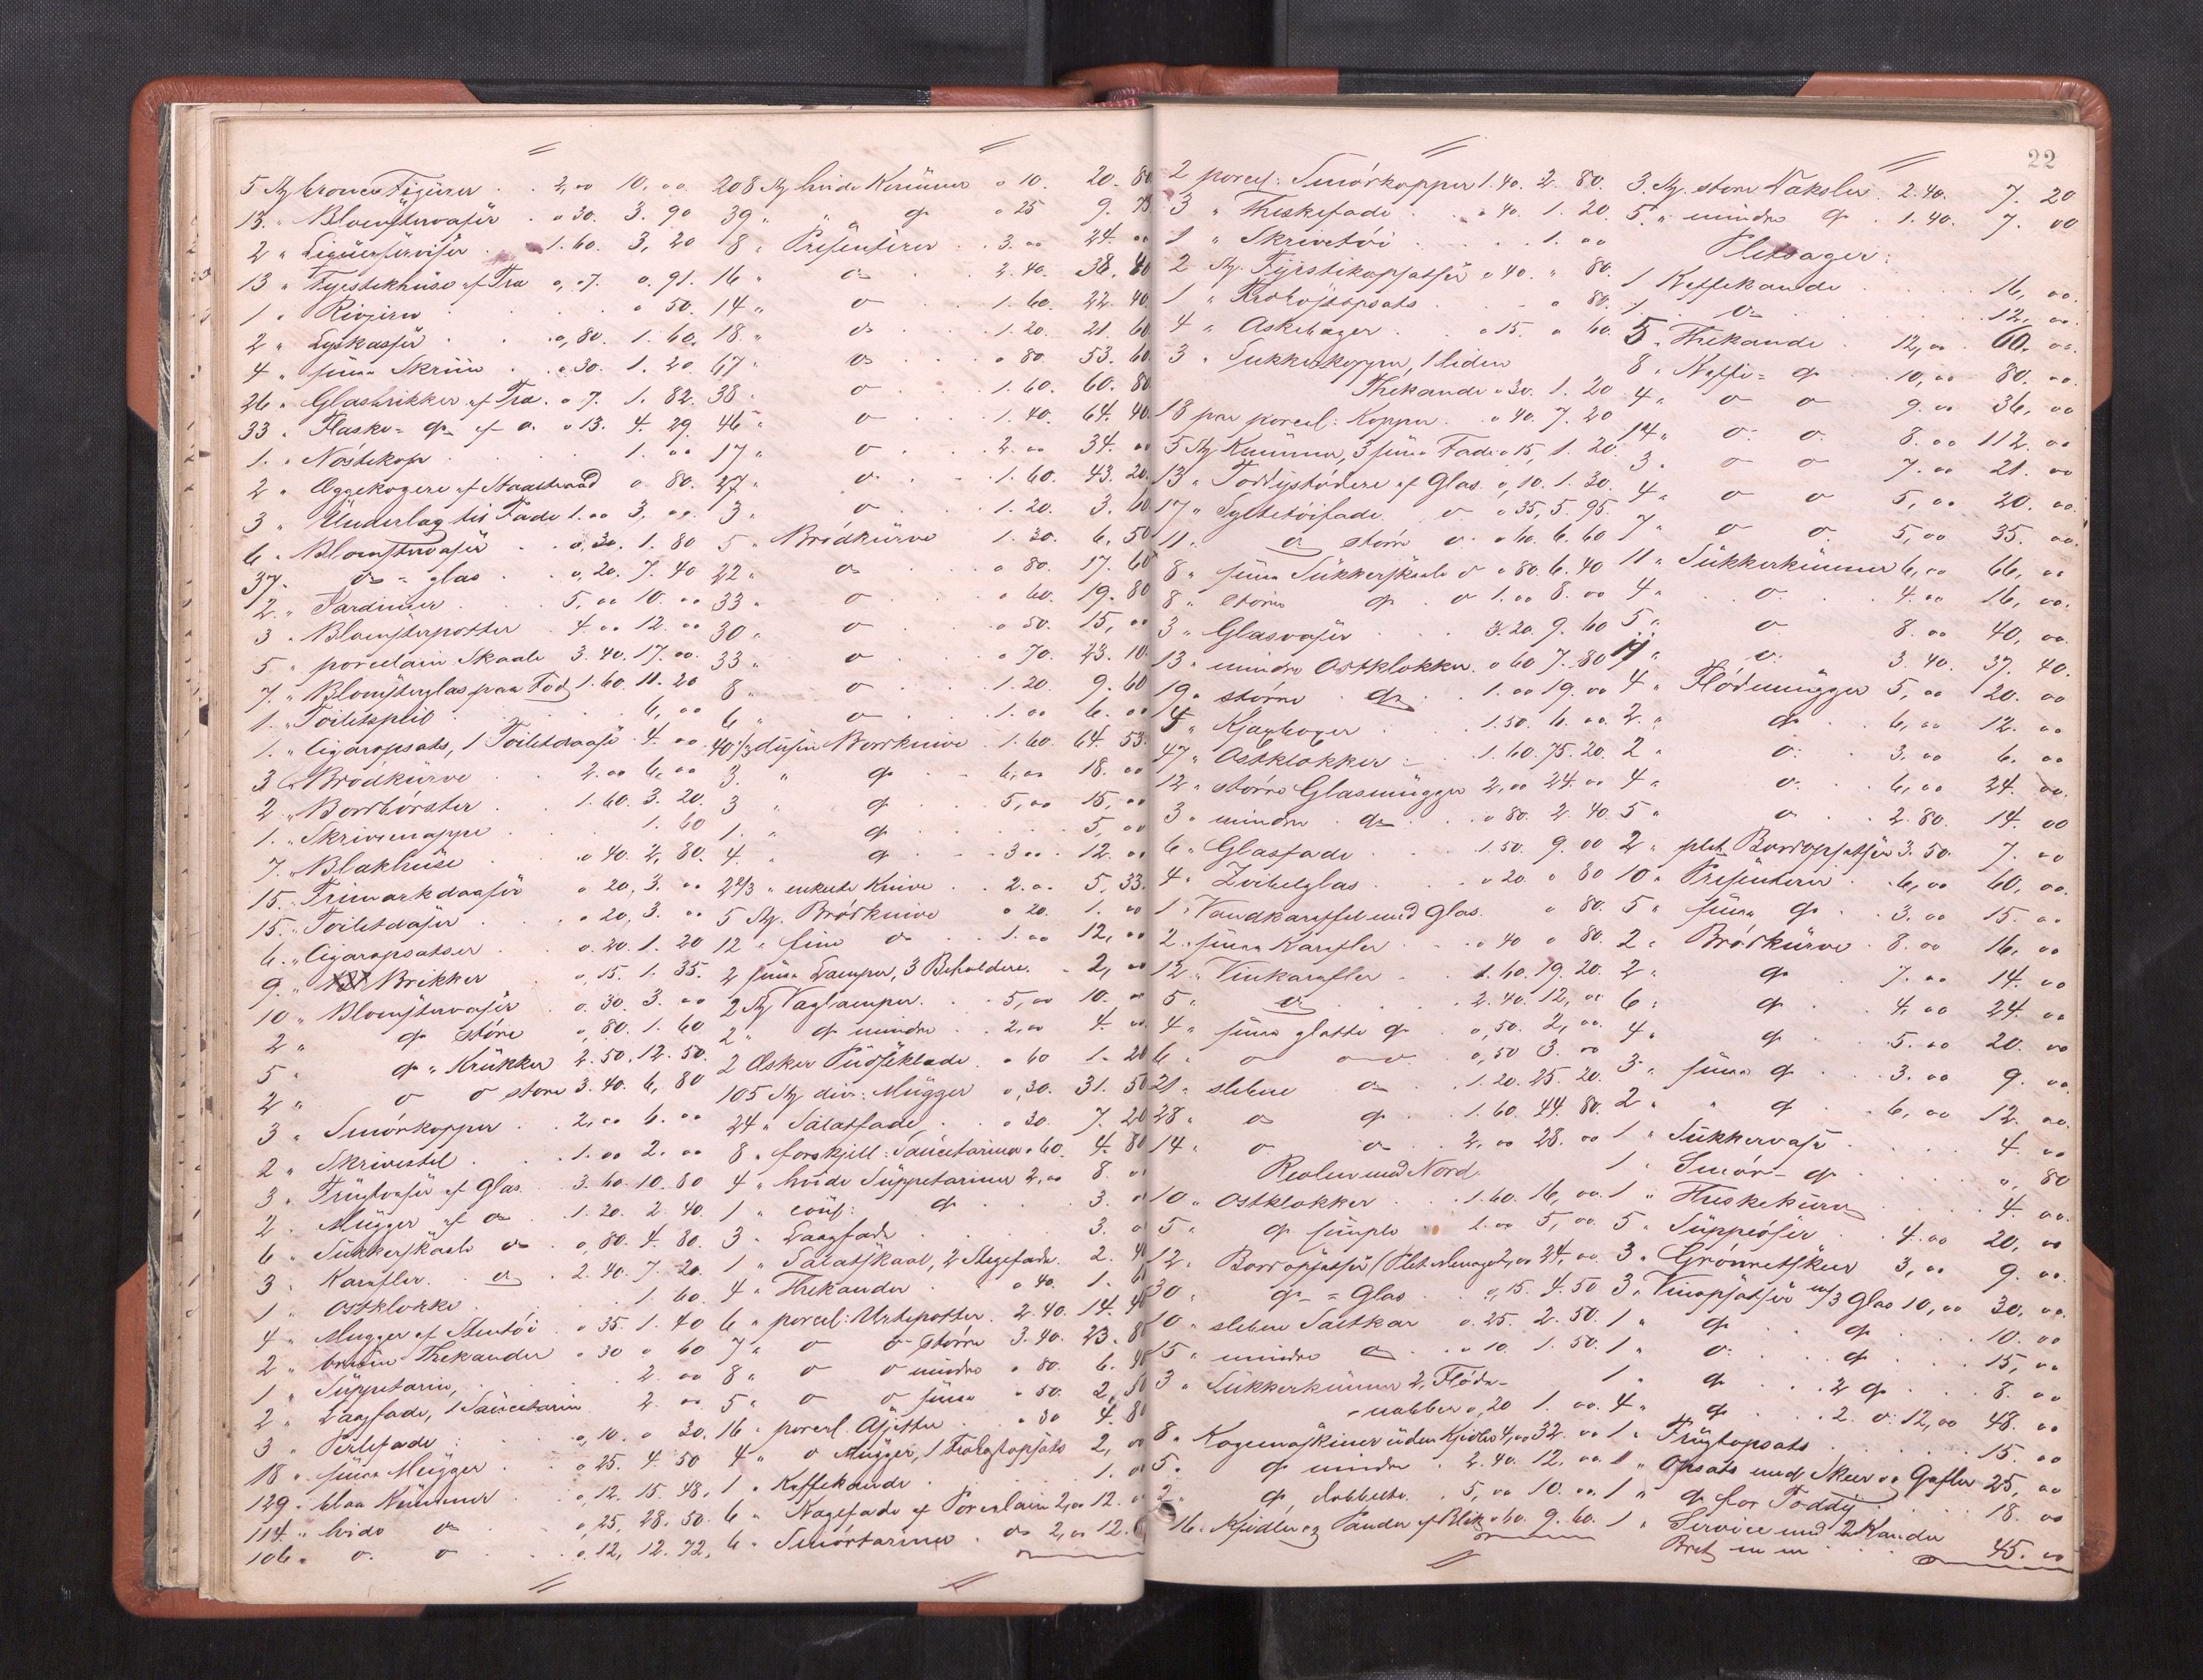 5 Stk bronce Figürer . . 2,00 10.00
13 " Blomstervaser . " 30. 3. 90
2 " Liqueurservise . 1.60. 3,20
13 " Fyrstikhüse af Træ 0,07. 0.91.
1 " Rivjern . . . " 50.
2 " Lyskasser . . 0,80. 1.60.
4 " smaa Skriin . . 0.30. 1.20
26 " Glasbrikker af Træ. 0.7. 1.82.
33 " Flaske= do af do. 0.13. 4.29.
1 " Nöstekop . . . 1.00
2 " Æggekogere af Staaltraad 0.80.
3 " Ünderlag til Fade 1.00 3.00
6 " Blomstervaser . . 0,30. 1.80
37 " do = glas . . 0,20. 7.40
2 " Jardiner . . 5,00 10.00
3 " Blomsterpotter . 4.00 12.00
5 " porcelain Skaale 3.40. 17.00
7 " Blomsterglas paa Fod 1.60. 11.20
1 " Toiletspeil . . 6,00
1 " Cigaropsats, 1 Toiletdaase . 4.00
3 " Brödkürve . . 2.00 6,00
2 " Bordbörster . . 1.60. 3.20.
1 " Skrivemappe . . 1.60
7 " Blakhüse . . 0.40. 2,80.
15 " Frimærkdaaser . 0 20, 3.00
15 " Toiletdaaser . . 0 20, 3.00
6 " Cigaropsatser . . 0.20. 1.20
9 " Brikker . . 0,15. 1.35.
10 " Blomstervaser . 0.30. 3.00
2 " do större . 0,80. 1.60
5 " do " Krükker 2.50. 12.50.
2 " do do store 3.40. 6,80
3 " Smörkopper . . 2.00 6.00
2 " Skrivestel . . 1.00 2.00
3 " Frügtvaser af Glas . 3.60. 10.80
2 " Mügger af do . 1.20. 2.40.
6 " Sukkerskaale do . 0,80. 4.80.
3 " Karafler . do . 2.40. 7.20.
1 " Ostklokke . . 1.60.
4 " Mugger af Stentöi . 0 35. 1.40
2 " brüün Thekander 0 30 0 60
1 " Süppeterin, . . 2.00
2 " Laagfade, 1 Saüceterin 2.00
3 " Perlefade . . 0,10. 0 30.
18 " smaa Mügger . 0 25. 4.50
129 " blaa Kümmer . 0,12. 15.48.
114 " hvide do . 0,25, 28.50.
106 " do do . . 0.12, 12.72,
208 Stk hvide Kümmer 0 10. 20.80
39 " " do . 0 25 9.75
8 " Præsenterer . . 3.00 24.00
16 " do . . 2.40. 38.40
14 " do . . 1.60. 22.40
18 " do . . 1.20. 21.60
67 " do . . 0 80. 53.60
38 " do . . 1.60. 60.80
46 " do . . 1.40. 64.40
17 " do . . 2.00 34.00
27 " do . . 1.60. 43.20
3 " do . . 1.20. 3.60
5 " Brödkürve 1.30. 6,50
22 " do . . 0 80. 17.60
33 " do . . 0 60. 19.80
30 " do . . 0 50. 15,00
33 " do . . 0 70. 23.10
8 " do . . 1.20. 9.60
6 " do . . 1.00 6.00
40 1/3 düsin Bordknive . 1.60. 64.53.
3 " do . 6,00 18.00
3 " do . 5,00 15,00
1 " do . . 5,00
4 " do . 3.00 . 12.00
2 2/3 " enkelte Knive . . 2.00 5,33.
5 Stk. Brödknive 0 20. 1.00
12 " fine do . 1.00 12,00
2 smaa Lamper, 3 Beholdere. . 2,00
2 Stk Væglamper . . 5,00 10.00
2 " do mindre . . 2.00 4.00
2 Æsker Püdseklæde . 0 60 1.20
105 Stk div: Mügger 0,30. 31.50
24 " Salatfade, . 0 30. 7.20
8 " forskjell: Saüceteriner 0 60. 4.80
4 " hvide Süppeteriner 2,00 8.00
1 " coül: do . . 3.00
3 " Laagfade . . 3.00
1 " Salatskaal, 2 Stegefade. 2.40
4 " Thekander . . 0 40. 1.60
6 " porcel: Urtepotter. 2.40. 14.40
7 " do do större 3.40. 23.80
8 " do do mindre 0 80. 6.40
5 " do do smaa 0 50. 2,50
16 " porcel. Asjetter . 0 30 4.80
4 " do Mugger, 1 Frügtopsats 2,00
1 " Kaffekande . . 1.00
6 " Kagefade af Porcelain 2,00 12.00
6 " Smörteriner do 2,00 12.00
22
2 porcel: Smörkopper 1.40. 2.80.
3 " Fiskefade . . 0 40. 1.20.
1 " Skrivetöi . . 1.00
2 Stk. Fyrstikopsatser 0 40. " 80.
1 " . . 0 80.
4 " Askebæger . . 0 15. 0 60.
3 " Sukkerkopper, 1 liden
Thekande 0 30. 1.20
18 par porcel: Kopper . 0 40. 7.20
5 Stk Kummer, 3 smaa Fade 0 15, 1.20.
13 " Toddystödere af Glas 0,10. 1.30.
17 " Syltetöifade do 0 35, 5.95.
11 " do större do 0 60. 6.60
8 " smaa Sükkerskaale do 0 80. 6.40
8 " större do do 1.00 8.00
3 " Glasvaser . . 3.20. 9.60
13 " mindre Ostklokker . 0 60 7.80
19 " större do . . 1.00 19.00
4 " . . 1.50. 6.00
47 " Ostklokker . . 1.60. 75.20.
12 " större Glasmügger 2,00 24.00
3 " mindre do . . 0 80. 2.40.
6 " Glasfade . . 1.50. 9.00
4 " Zvibelglas . . 0 20. 0 80
1 " Vandkaraffel med Glas . 0 80.
2 " smaa Karafler . . 0 40 0 80.
12 " Vinkarafler . . 1.60. 19.20.
5 " do . . 2.40. 12,00
4 " smaa glatte do . 0,50. 2,00.
6 " do do do . 0,50 3.00
21 " slebne do . 1.20. 25.20.
28 " do do . 1.60. 44.80.
14 " do do . 2.00 28.00
Reolen mod Nord.
10 " Ostklokker . . 1.60. 16,00.
5 " do simple . 1.00 5,00.
12 " Bordopsatser (Plet Menager) 2,00 24,00
30 " do = Glas . . 0,15. 4.50
10 " slebne Saltkar 0.25. 2.50.
15 " mindre do . . 0 10. 1.50.
3 " Sukkerkümmer 2, Flöde-
-nabber 0,20 1.00
8 " Kogemaskiner üden Kjedler 4,00 32.00
5 " do mindre . 2.40. 12.00
2 " do, dobbelte . 5,00 10.00
16 " Kjedler og Pander af Blik 0 60. 9.60.
3 Stk. store Vaksler . 2.40. 7.20
5 " mindre do . 1.40. 7.00
Pletsager:
1 Kaffekande . . 16,00
1 " do . . 12,00
5 " Thekande . 12,00 . 60.00
8 " Kaffe= do . 10,00 80.00
4 " do do 9.00 36,00
14 " do. do. 8.00 112.00
3 " do do 7.00 21.00
4 " do do 5,00 20.00
7 " do do. 5,00 35.00
11 " Sukkerkümmer 6,00 66,00
4 " do. . 4.00 16,00.
5 " do 8.00 40,00
11 " do. 3.40. 37.40.
4 " Flödemügger 5,00 20.00
2 " do . . 6,00 12.00
2 " do: . 3.00 6.00
4 " do. . 6,00 24.00.
5 " do . . 2.80. 14.00
2 " plet Bordopsatser 3.50. 7.00
10 " Præsenterer . 6,00 60,00.
5 " smaa do . . 3.00 15.00
2 " Brödkürve . 8.00 16,00
2 " do . 7.00 14.00
6 " do . 4,00 24.00
4 " do . 5.00 20.00
3 " smaa do . . 3.00 9.00
2 " " do . 6,00 12.00.
1 " Sükkervase . . 4.00
1 " Smör- do . . 0,80
1 " . . 4.00
5 " Süppeöser . . 4.00 20,00
3 " Grönnetskeer 3,00 9.00.
3 " Vinopsatser m/3 Glas 10,00 30,00.
1 " do . do . . 10.00
1 " do. do . . 15,00
1 " do . . 2 do . . 8.00
4 " do . . 2. do. 12,00 48.00
1 " Frügtopsats . . 15.00
1 " Opsats med Skeer og Gafler 25,00
1 " do for Toddy . . 18.00
1 " Service med 2 Kander
Bret m m . . 45.00